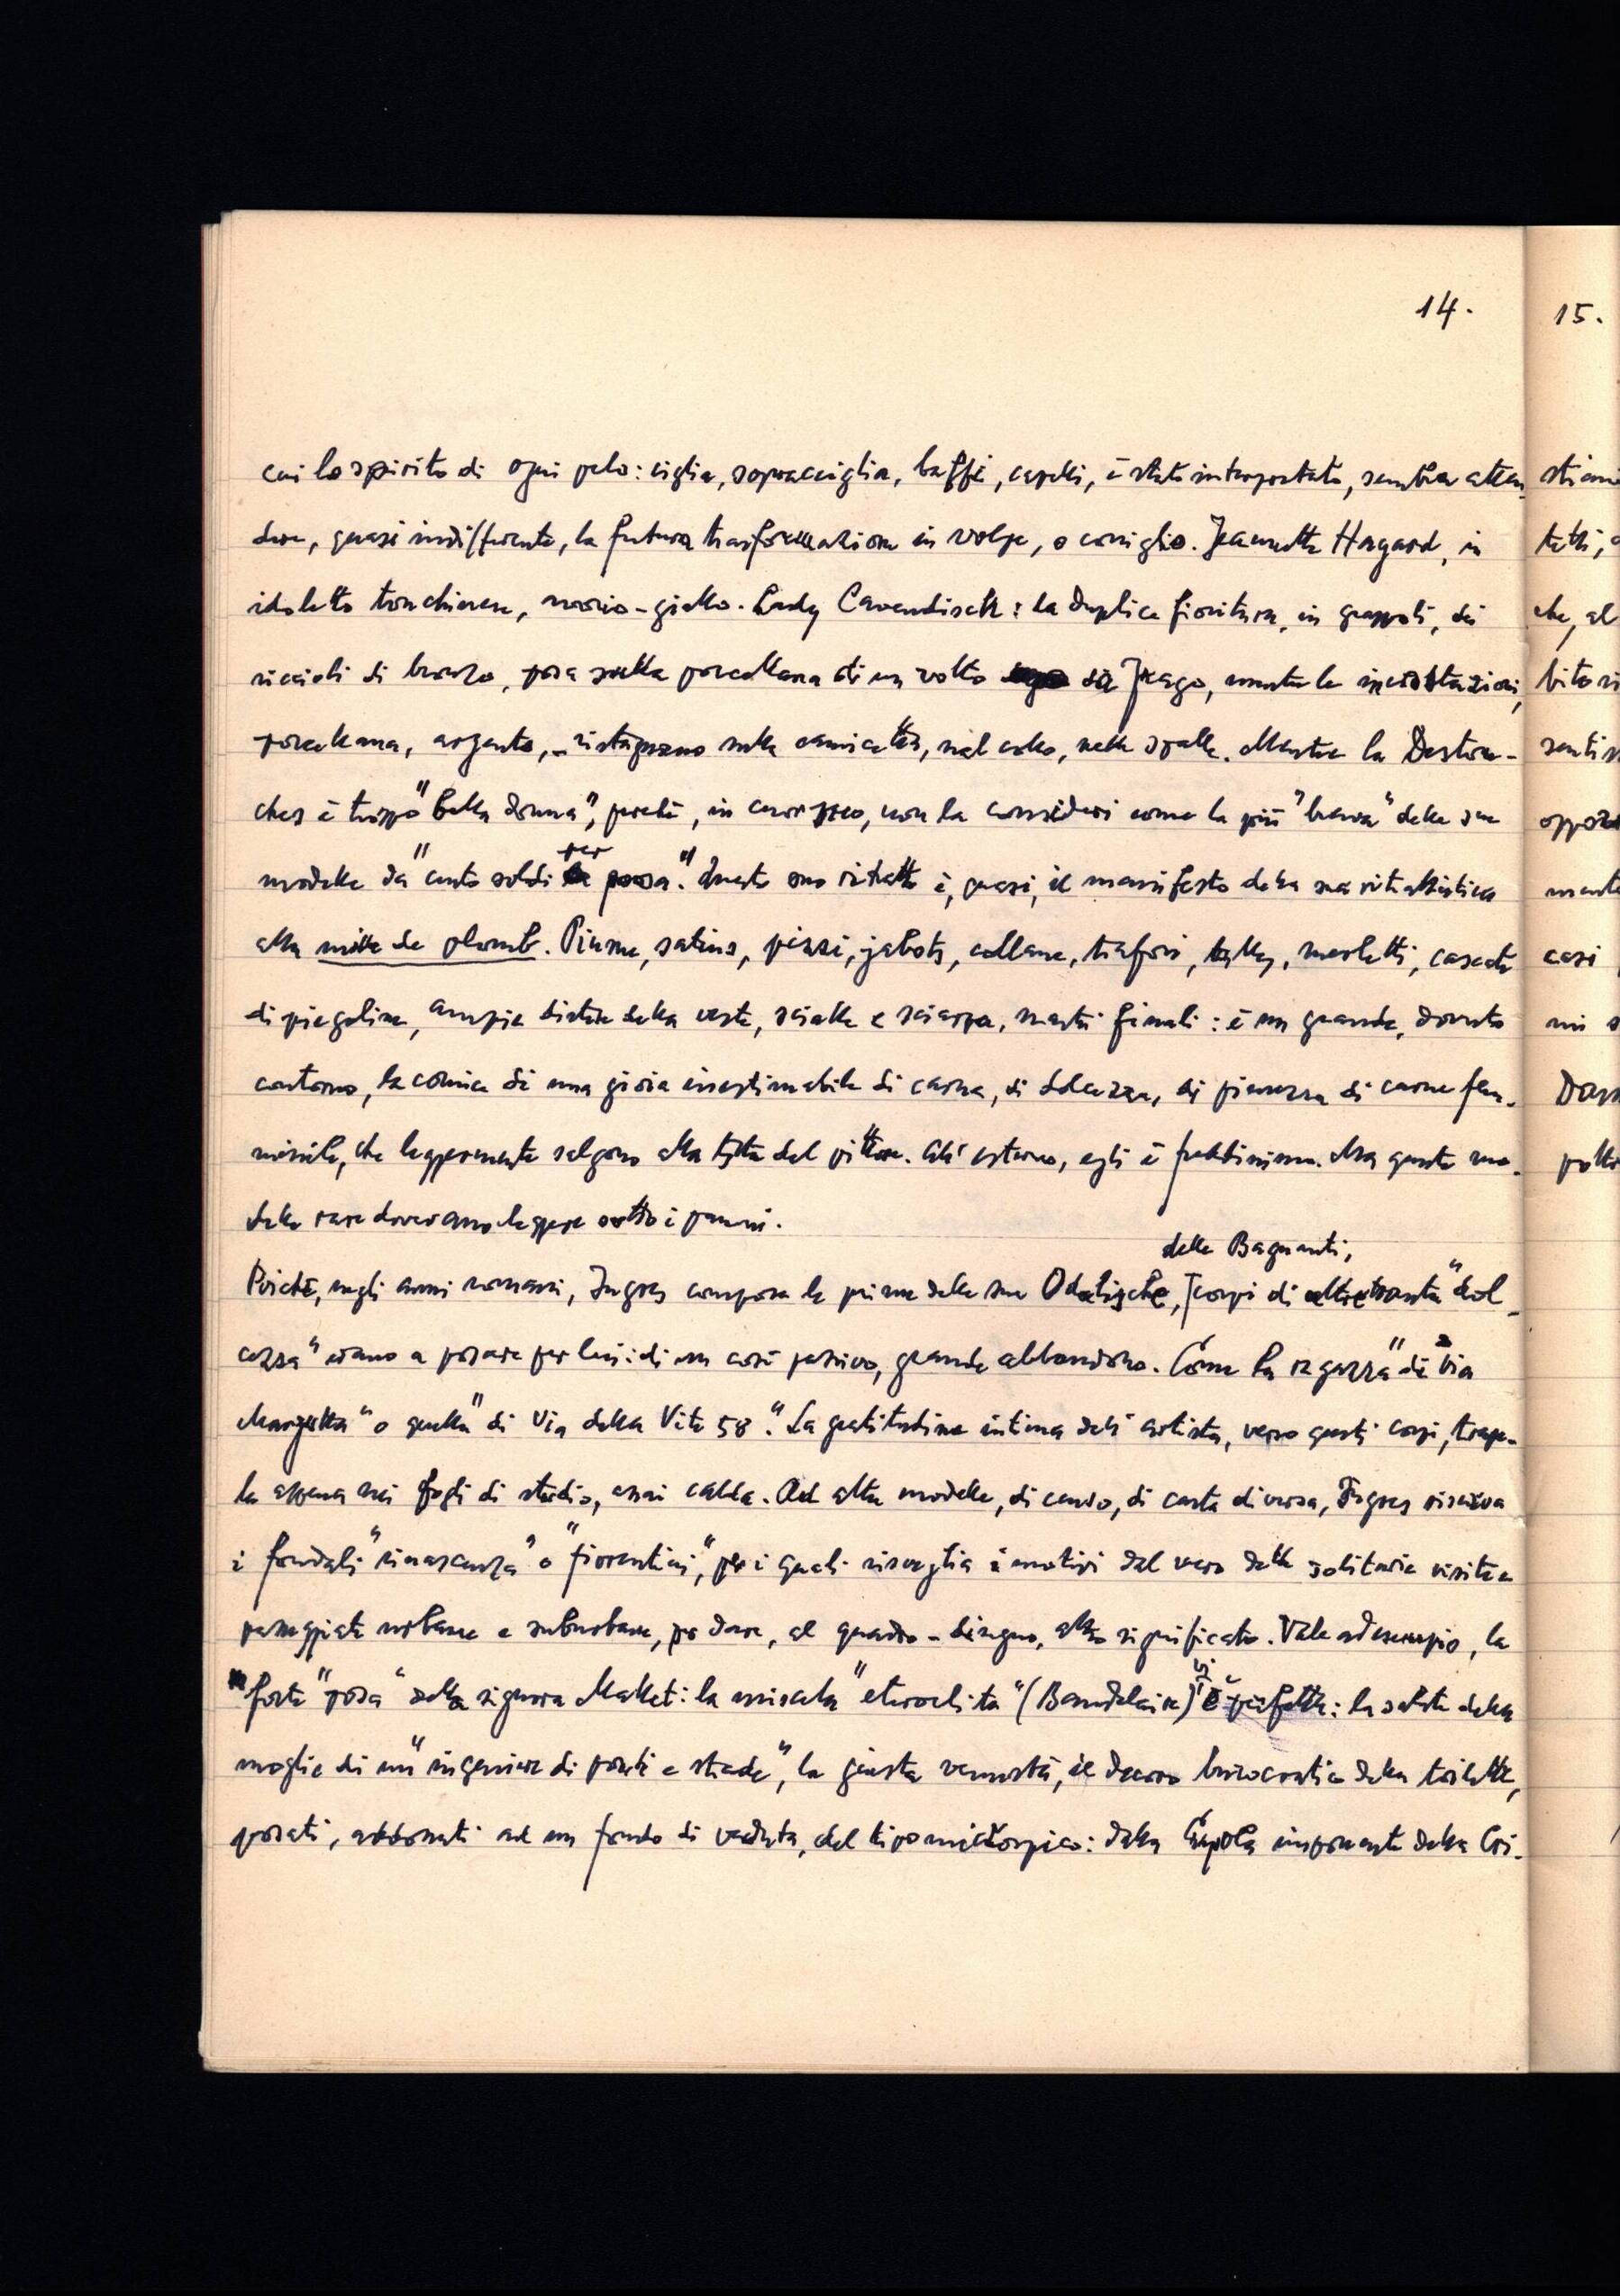 14.
cui lo spirito di ogni pelo: ciglia, sopracciglia, baffi, capelli, è stato interpretato, sembra atten-
dere, quasi indifferente, la futura trasformazione in volpe, o coniglio. Jeannette Hagard, in
idoletto tonchinese, avorio-giallo. Lady Cavendisch: la duplice fioritura, in grappoli, dei
riccioli di bronzo, posa sulla porcellana di un volto di Drago, mentre le incrostazioni,
porcellana, argento, ristagnano sulla camicetta, nel collo, nelle spalle. Mentre la Destou-
ches è troppo "bella donna", perché, in cuor suo, non la consideri come la più "brava" delle sue
modelle da "cento soldi per posa". Questo suo ritratto è, quasi, il manifesto della sua ritrattistica
alla mine de plomb. Piume, satins, pizzi, jabots, collane, trafori, tulles, merletti, cascate
di piegoline, ampie distese della veste, scialle e sciarpa, nastri finali: è un grande, dovuto
contorno, la cornice di una gioia inestimabile di carne, di dolcezza, di pienezza di carne fem-
minile, che leggermente salgono alla testa del pittore. All'esterno, egli è freddissimo. Ma queste mo-
delle rare dovevano leggere sotto i panni.
Poiché, negli anni romani, Ingres compose le prime delle sue Odalische, delle Bagnanti, corpi di altrettanta "dol-
cezza" erano a posare per lui: di un così passivo, grande abbandono. Come la ragazza "di Via
Margutta" o quella "di Via della Vite 58". La gratitudine intima dell'artista, verso questi corpi, trape-
la appena nei fogli di studio, assai calda. Ad altre modelle, di censo, di casta diversa, Ingres riserva
i fondali "rinascenza" o "fiorentini", per i quali risveglia i motivi dal vero delle solitarie visite e
passeggiate urbane e suburbane, per dare, al quadro-disegno, altro significato. Vale ad esempio, la
forte "posa" della signora Mallet: la miscela "eteroclita" (Baudelaire) è perfetta: la salute della
moglie di un "ingegnere di ponti e strade", la giusta venustà, il decoro burocratico della toilette,
posati, abbonati ad un fondo di veduta, del tipo microscopico: dalla Cupola imponente della Cri-
15.